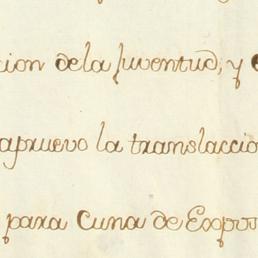 cion dela Juventud, y
apruevo la translaccio
para Cuna de Expos